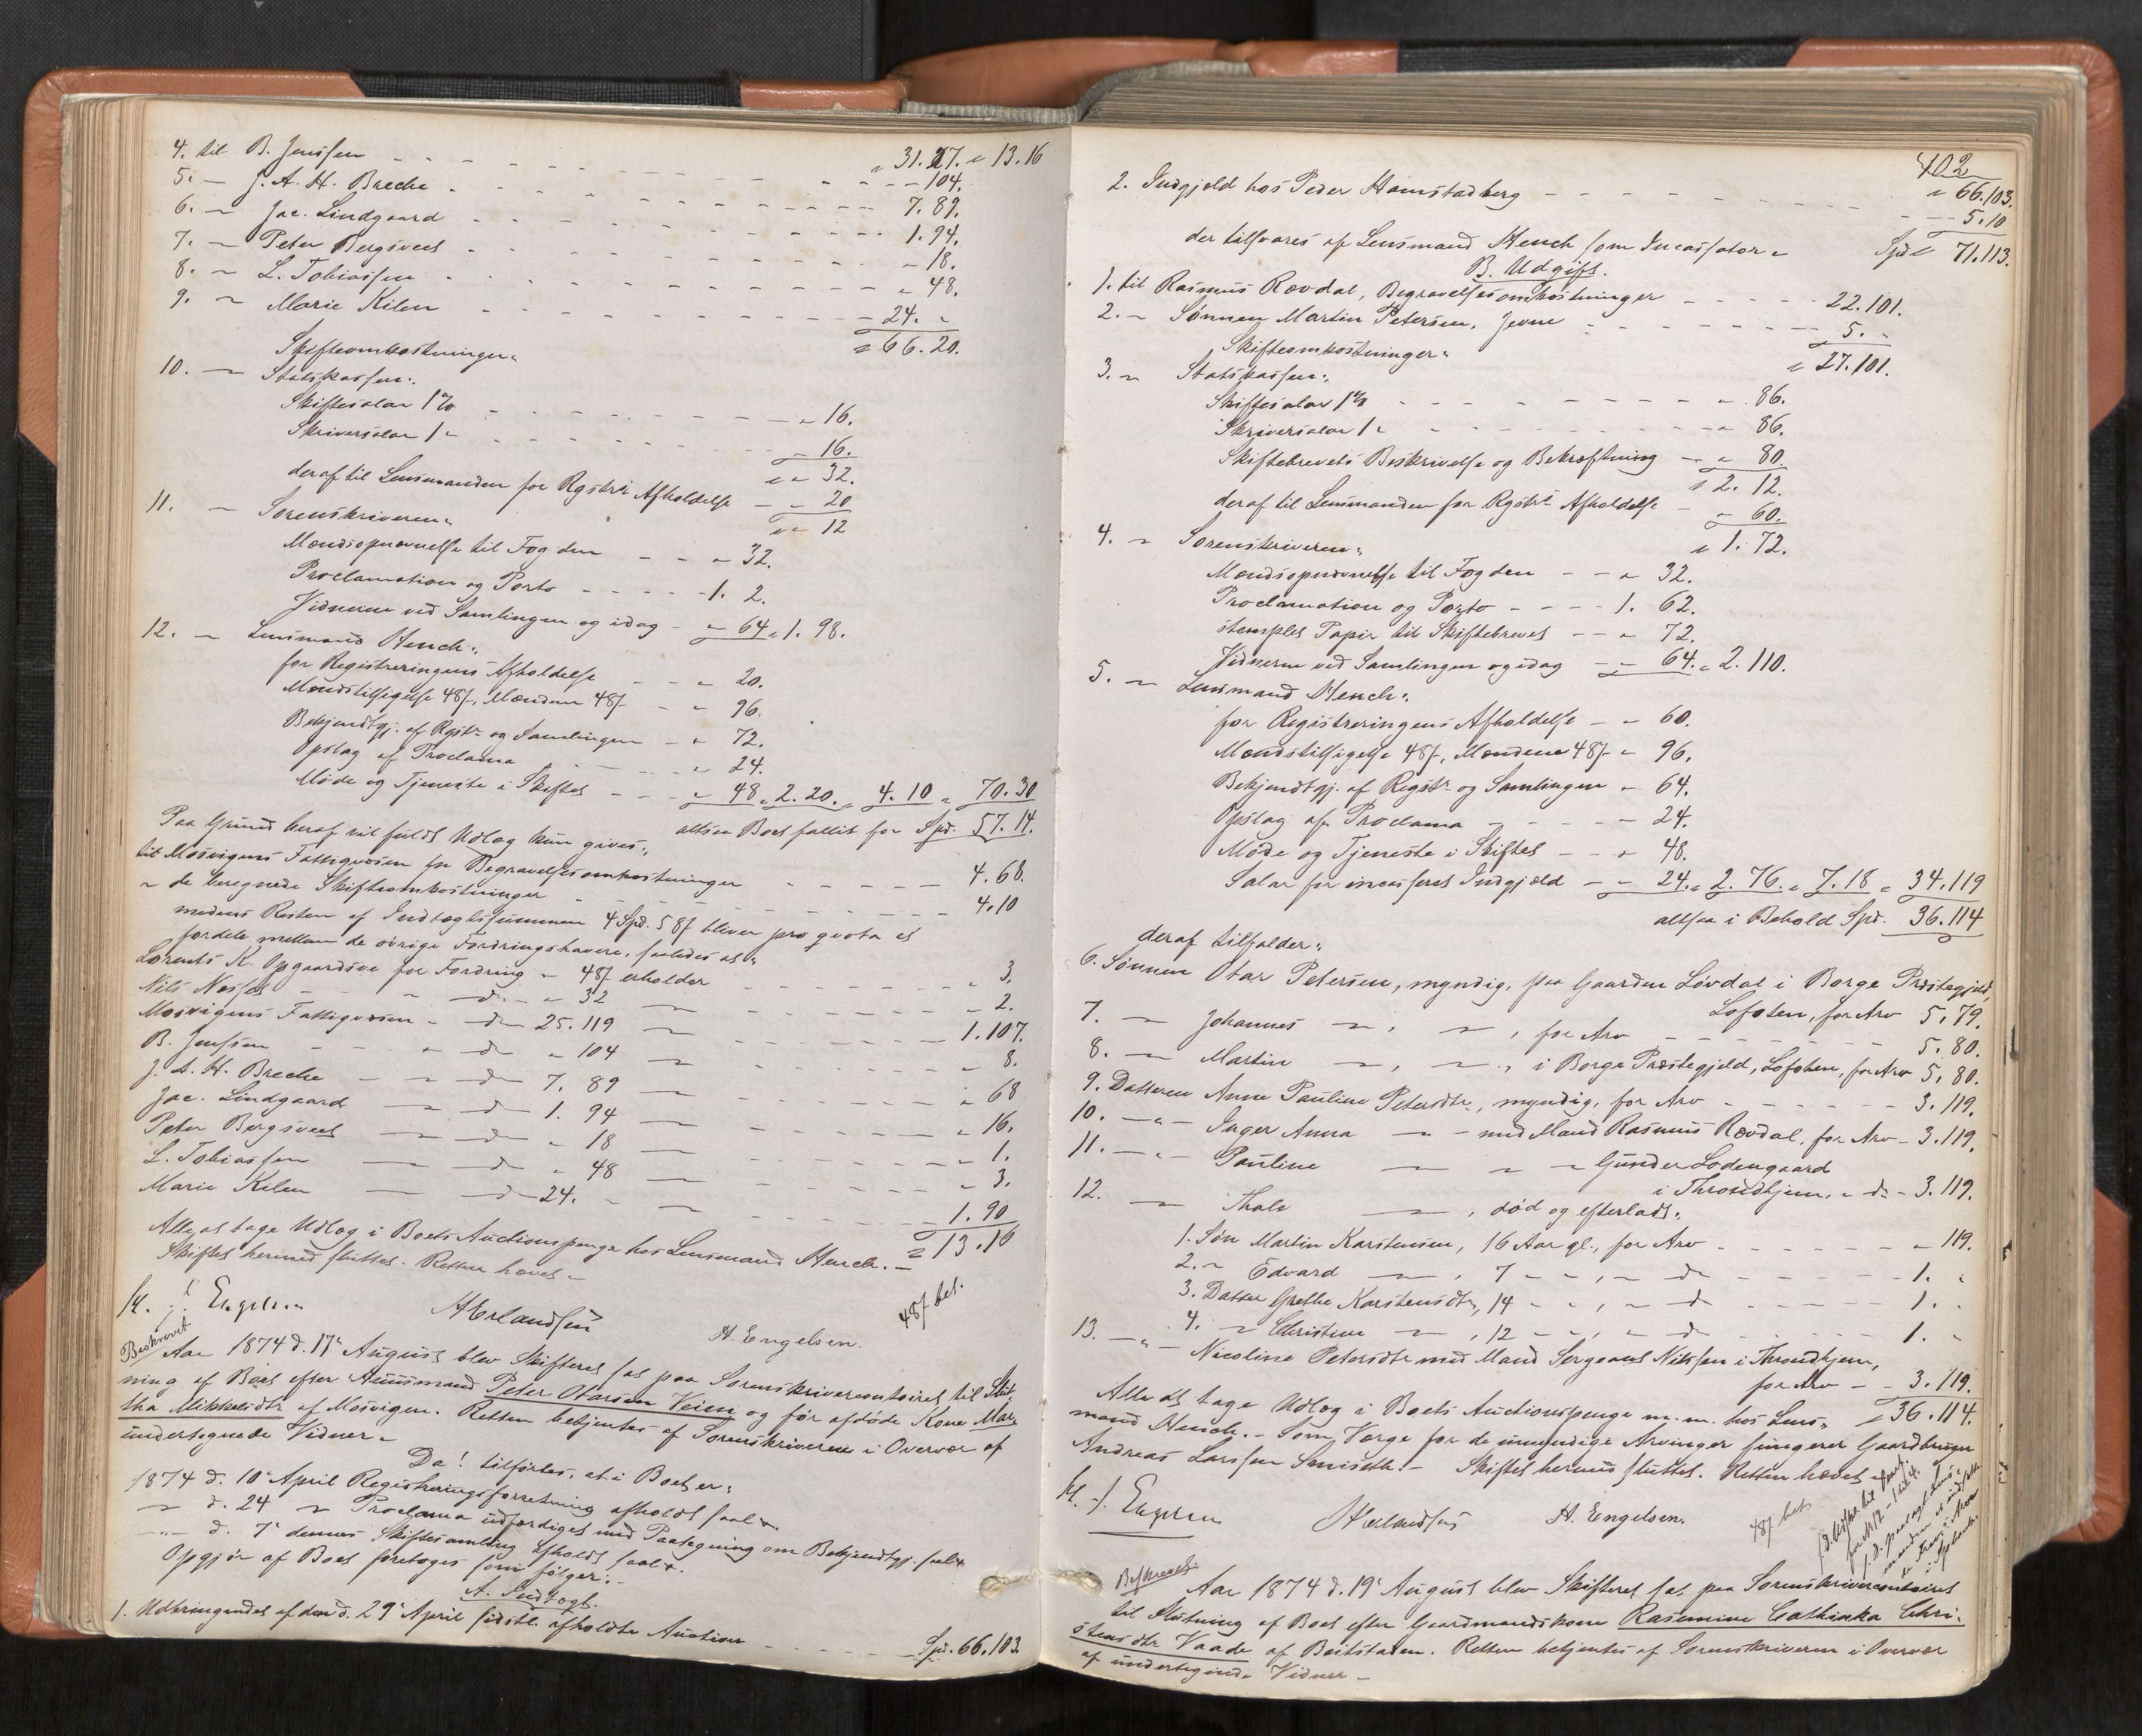 4. til B. Jenssen - - - - " 31. 27. " 13.16
5. — J. A. H. Breche - - - - 104.
6. — Jac. Lindgaard - - - - 7. 89.
7. — Peter Bergsveet - - - - 1. 94.
8. — L. Tobiassen - - - - " 18.
9. — Marie Kilen - - - - " 48.
- 24. "
Skifteomkostninger: " 66. 20.
10. — Statskassen:
Skiftesalar 1% - - - - " 16.
Skriversalar 1 " - - - - " 16.
" " 32.
deraf til Lensmanden for Rgstr's Afholdelse - " 20
11. — Sorenskriveren: " " 12
Mændsopnævnelse til Fogden - - " 32.
Proclamation og Porto - - - - 1. 2.
Vidnerne ved Samlingen og idag - " 64 " 1. 98.
12. — Lensmand Hench:
for Registreringens Afholdelse - - " 20.
Mændstilsigelse 48 f, Mændene 48 f - " 96.
Bekjendtgj. af Rgstr og Samlingen - " 72.
Opslag af Proclama - - - " 24.
Møde og Tjeneste i Skiftet - - " 48. " 2. 20. " 4. 10 " 70. 30
altsaa Boet fallit for Spd. 57. 14.
Paa Grund heraf vil fuldt Udlæg kun gives:
til Mosvigens Fattigvæsen for Begravelsesomkostninger - - - - 4. 68.
" de beregnede Skifteomkostninger - - - - 4. 10
medens Resten af Indtægtssummen 4 Spd. 58 f bliver pro qvota at
fordele mellem de øvrige Fordringshavere, saaledes at:
Lorents K. Opgaardsve for Fordring - 48 f erholder - - - - " 3.
Nils Næsset - - " — d — " 32 — - - - - " 2.
Mosvigens Fattigvæsen - — d — 25. 119 — - - - - 1. 107.
B. Jenssen - - — d — " 104 — - - - - " 8.
J. A. H. Breche - - — d — 7. 89 — - - - - " 68
Jac. Lindgaard — — d — 1. 94 — - - - - " 16.
Peter Bergsveet — — d — " 18 — - - - - " 1.
L. Tobiassen — — d — " 48 — - - - - " 3.
Marie Kilen — — d — 24. " — - - - - 1. 90
Alle at tage Udlæg i Boets Auctionspenge hos Lensmand Hench. - " 13. 16
Skiftet hermed sluttet. Retten hævet -
M. J. Engelsen H Erlandsen H. Engelsen. 48 f bet.
Beskrevet
Aar 1874 d. 17de August blev Skifteret sat paa Sorenskrivercontoiret til Slut-
ning af Boet efter Huusmand Peter Otarsen Veien og før afdøde Kone Mar-
tha Mikkelsdtr af Mosvigen. Retten betjentes af Sorenskriveren i Overvær af
undertegnede Vidner -
Da! tilførtes, at i Boet er:
1874 d. 10de April Registreringsforretning afholdt saal.
— d. 24 — Proclama udfærdiget med Paategning om Bekjendtgj. saal.
— " — d. 7de dennes Skiftesamling afholdt saal.
Opgjør af Boet foretoges som følger:
A. Indtægt.
1. Udbringendet af den d. 29de April sidstl. afholdte Auction - - - - Spd. 66. 103.
402
" 66. 103.
2. Indgjeld hos Peder Hamstadberg - - - - 5. 10
der tilsvares af Lensmand Hench som Incassator " Spd. " 71. 113.
B. Udgift.
1. til Rasmus Rævdal, Begravelsesomkostninger - - - - 22. 101.
2. — Sønnen Martin Petersen, Jevne - - - - 5. "
Skifteomkostninger: " 27. 101.
3. — Statskassen:
Skiftesalar 1% - - - - " 86.
Skriversalar 1 " - - - - " 86.
Skiftebrevets Beskrivelse og Bekræftning - " 80.
" 2. 12.
deraf til Lensmanden for Rgstr's Afholdelse - " 60.
4. — Sorenskriveren: " 1. 72.
Mændsopnævnelse til Fogden - - " 32.
Proclamation og Porto - - - - 1. 62.
stemplet Papir til Skiftebrevet - - " 72.
Vidnerne ved Samlingen og idag - - " 64. " 2. 110.
5. — Lensmand Hench:
for Registreringens Afholdelse - - 60.
Mændstilsigelse 48 f, Mændene 48 f " 96.
Bekjendtgj. af Registr og Samlingen " 64.
Opslag af Proclama - - - - 24.
Møde og Tjeneste i Skiftet - - " 48.
Salar for incasseret Indgjæld - - 24. " 2. 76. " 7. 18 " 34. 119
altsaa i Behold Spd. 36. 114
deraf tilfalder:
6. Sønnen Otar Petersen, myndig, paa Gaarden Løvdal i Borge Præstegjeld,
Lofoten, for Arv 5. 79.
7. — Johannes —, —, for Arv - - - - 5. 80.
8. — Martin —, —, i Borge Præstegjeld, Lofoten, for Arv 5. 80.
9. Datteren Anne Pauline Petersdtr, myndig, for Arv - - - - 3. 119.
10. — " — Inger Anna — - med Mand Rasmus Rævdal, for Arv - 3. 119.
11. — " — Pauline — — — Gunder Lodengaard
i Throndhjem, " d - 3. 119.
12. — Thale —, død og efterladt:
1. Søn Martin Karstensen, 16 Aar gl., for Arv - - - - " 119.
2. " Edvard —, 7 - ", — d — - - - 1. "
3. Datter Grethe Karstensdtr, 14 - ", — d — - - - 1. "
4. — Christine —, 12 - ", — d — - - - 1. "
13. — " — Nicoline Petersdtr med Mand Sergeant Nilssen i Throndhjem,
for Arv - - 3. 119.
Alle at tage Udlæg i Boets Auctionspenge m. m. hos Lens- " 36. 114.
mand Hench. - Som Værge for de umyndige Arvinger fungerer Gaardbruger
Andreas Larssen Seniseth. - Skiftet hermed sluttet. Retten hævet -
M. J. Engelsen H Erlandsen H. Engelsen. 48 f bet.
Beskrevet.
Aar 1874 d. 19de August blev Skifteret sat paa Sorenskrivercontoiret
til Slutning af Boet efter Gaardmandskone Rasemine Cathinka Chri-
stensdtr Vaade af Beitstaden. Retten betjentes af Sorenskriveren i Overvær
af undertegnede Vidner -